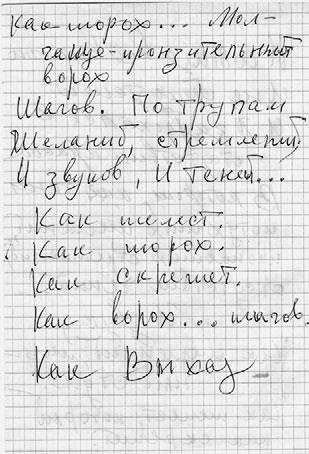 Как шорох... Мол-
чаще-пронзительный
ворох
Шагов. По трупам
Желаний, стремлений,
И звуков, И теней...
Как шелест.
Как шорох.
Как скрежет.
Как ворох... шагов.
Как